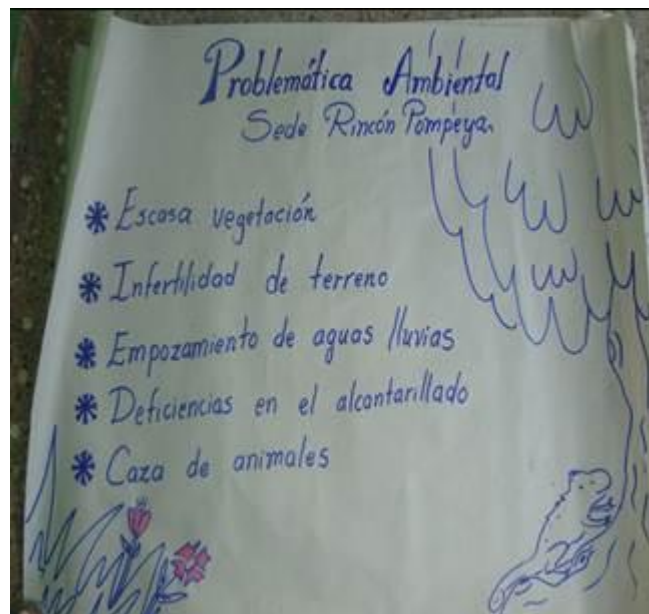 Problemática Ambiental
Sede Rincón Pompeya.
* Escasa vegetación
* Infertilidad de terreno
* Empozamiento de aguas lluvias
* Deficiencias en el alcantarillado
* Caza de animales